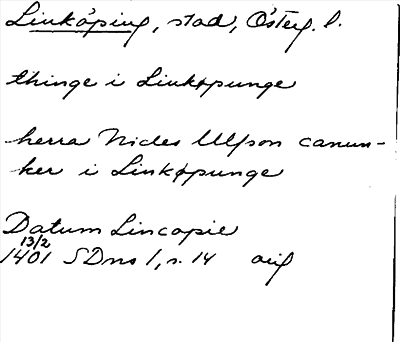 Linköping, stad, Österg. l.
thinge i Linkøpunge
herra Nicles Ulfson canun-
ker i Linkøpunge
Datum Lincopie
13/2
1401 SDns 1, s. 14 orig